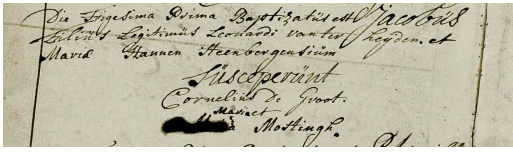 Die Trigesima Prima Baptizatus est Jacobus
Filius Legitimus Leonardi vanter Heyden. et
Mariæ Hannen Steenbergensium
Süsceperünt
Cornelius De Groot.
Maria et
Mostingh.